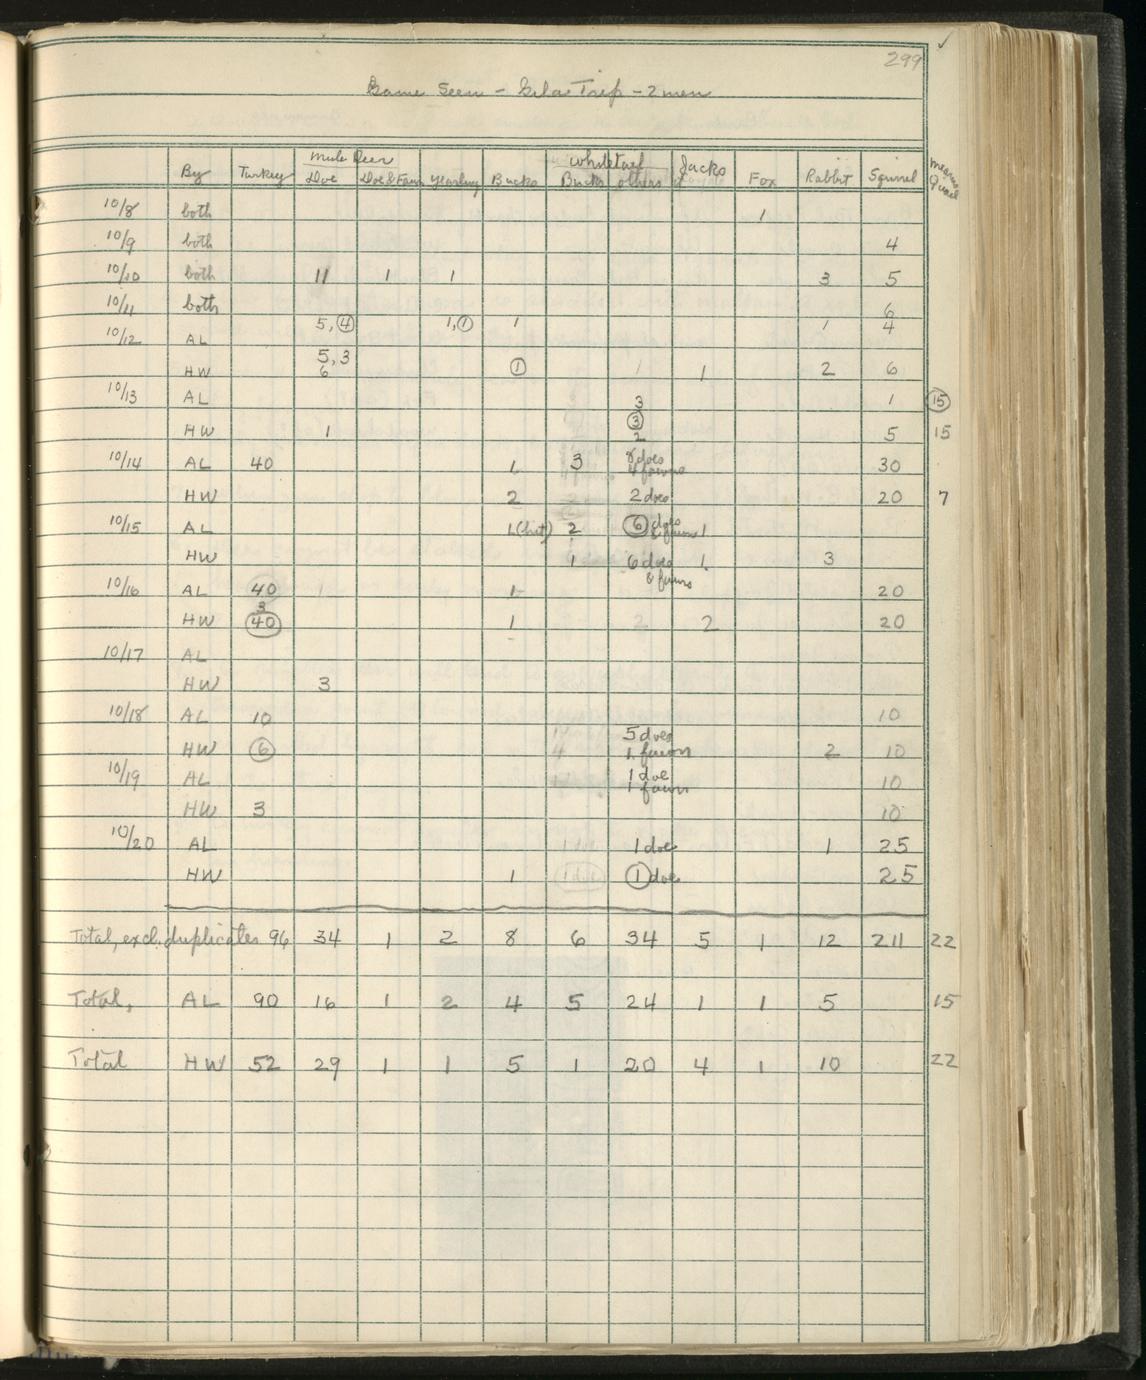 299
Game Seen - Gila Trip - 2 men
Mule Deer Whitetail Jacks Mearns Quail
By Turkey Doe Doe & Fawn Yearling Bucks Bucks others Fox Rabbit Squirrel
10/8 both 1
10/9 both 4
10/10 both 11 1 1 3 5
10/11 both 6
5, 4 1, 1 1 1 4
10/12 AL
5, 3
HW 6 1 1 1 2 6
10/13 AL 3 1 15
3
HW 1 2 5 15
10/14 AL 40 1 3 does 30
4 fawns
HW 2 2 does 20 7
10/15 AL 1 (hit) 2 6 does & fawns 1
HW 1 6 does 1 3
& fawns
10/16 AL 40 1 20
3
HW 40 1 2 2 20
10/17 AL
HW 3
10/18 AL 10 10
5 does
HW 6 1 fawn 2 10
10/19 AL 1 doe 10
1 fawn
HW 3 10
10/20 AL 1 doe 1 25
HW 1 1 doe 25
Total, excl. duplicates 96 34 1 2 8 6 34 5 1 12 211 22
Total, AL 90 16 1 2 4 5 24 1 1 5 15
Total HW 52 29 1 1 5 1 20 4 1 10 22